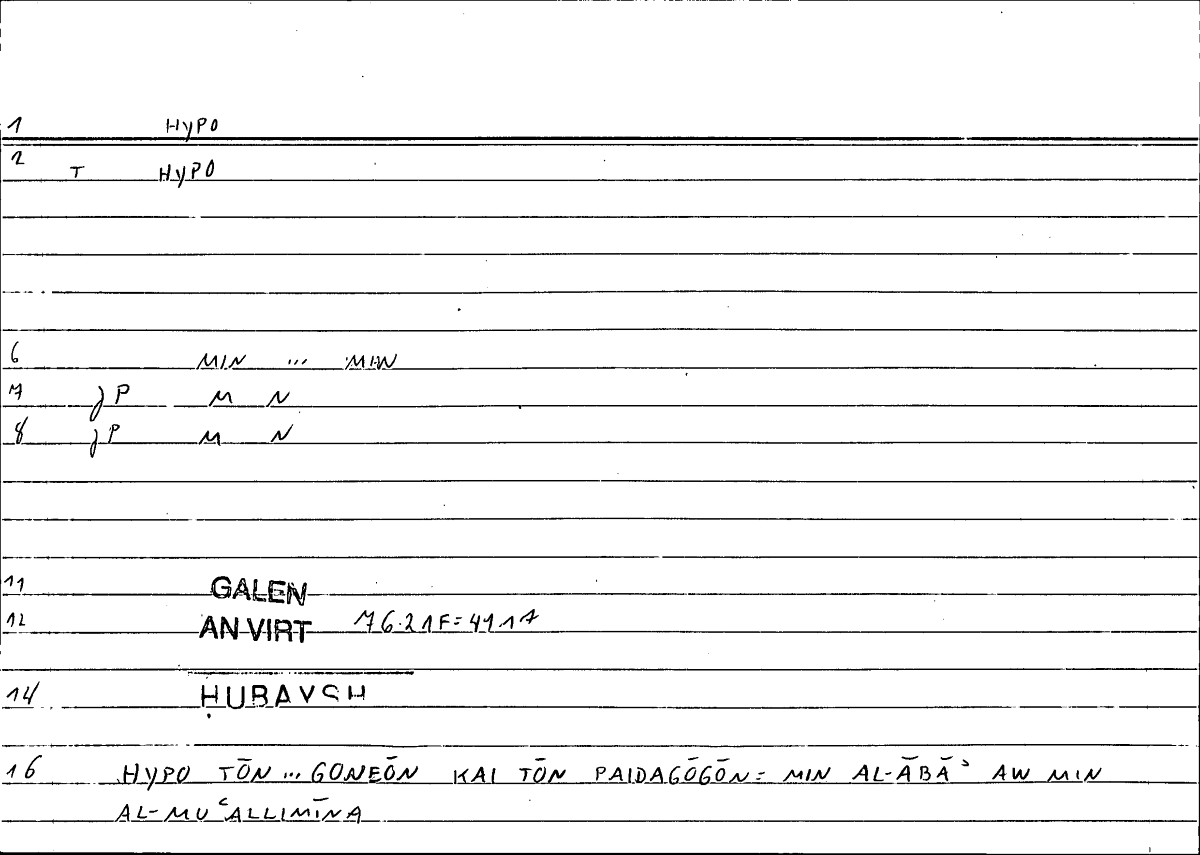 1 HYPO
2 T HYPO
6 MIN ... MIN
7 JP M N
8 JP M N
11 GALEN
12 AN VIRT 76.21F=41 17
14 ḤUBAYSH
16 HYPO TŌN ... GONEŌN KAI TŌN PAIDAGŌGŌN = MIN AL-ĀBĀʾ AW MIN
AL-MUʿALLIMĪNA